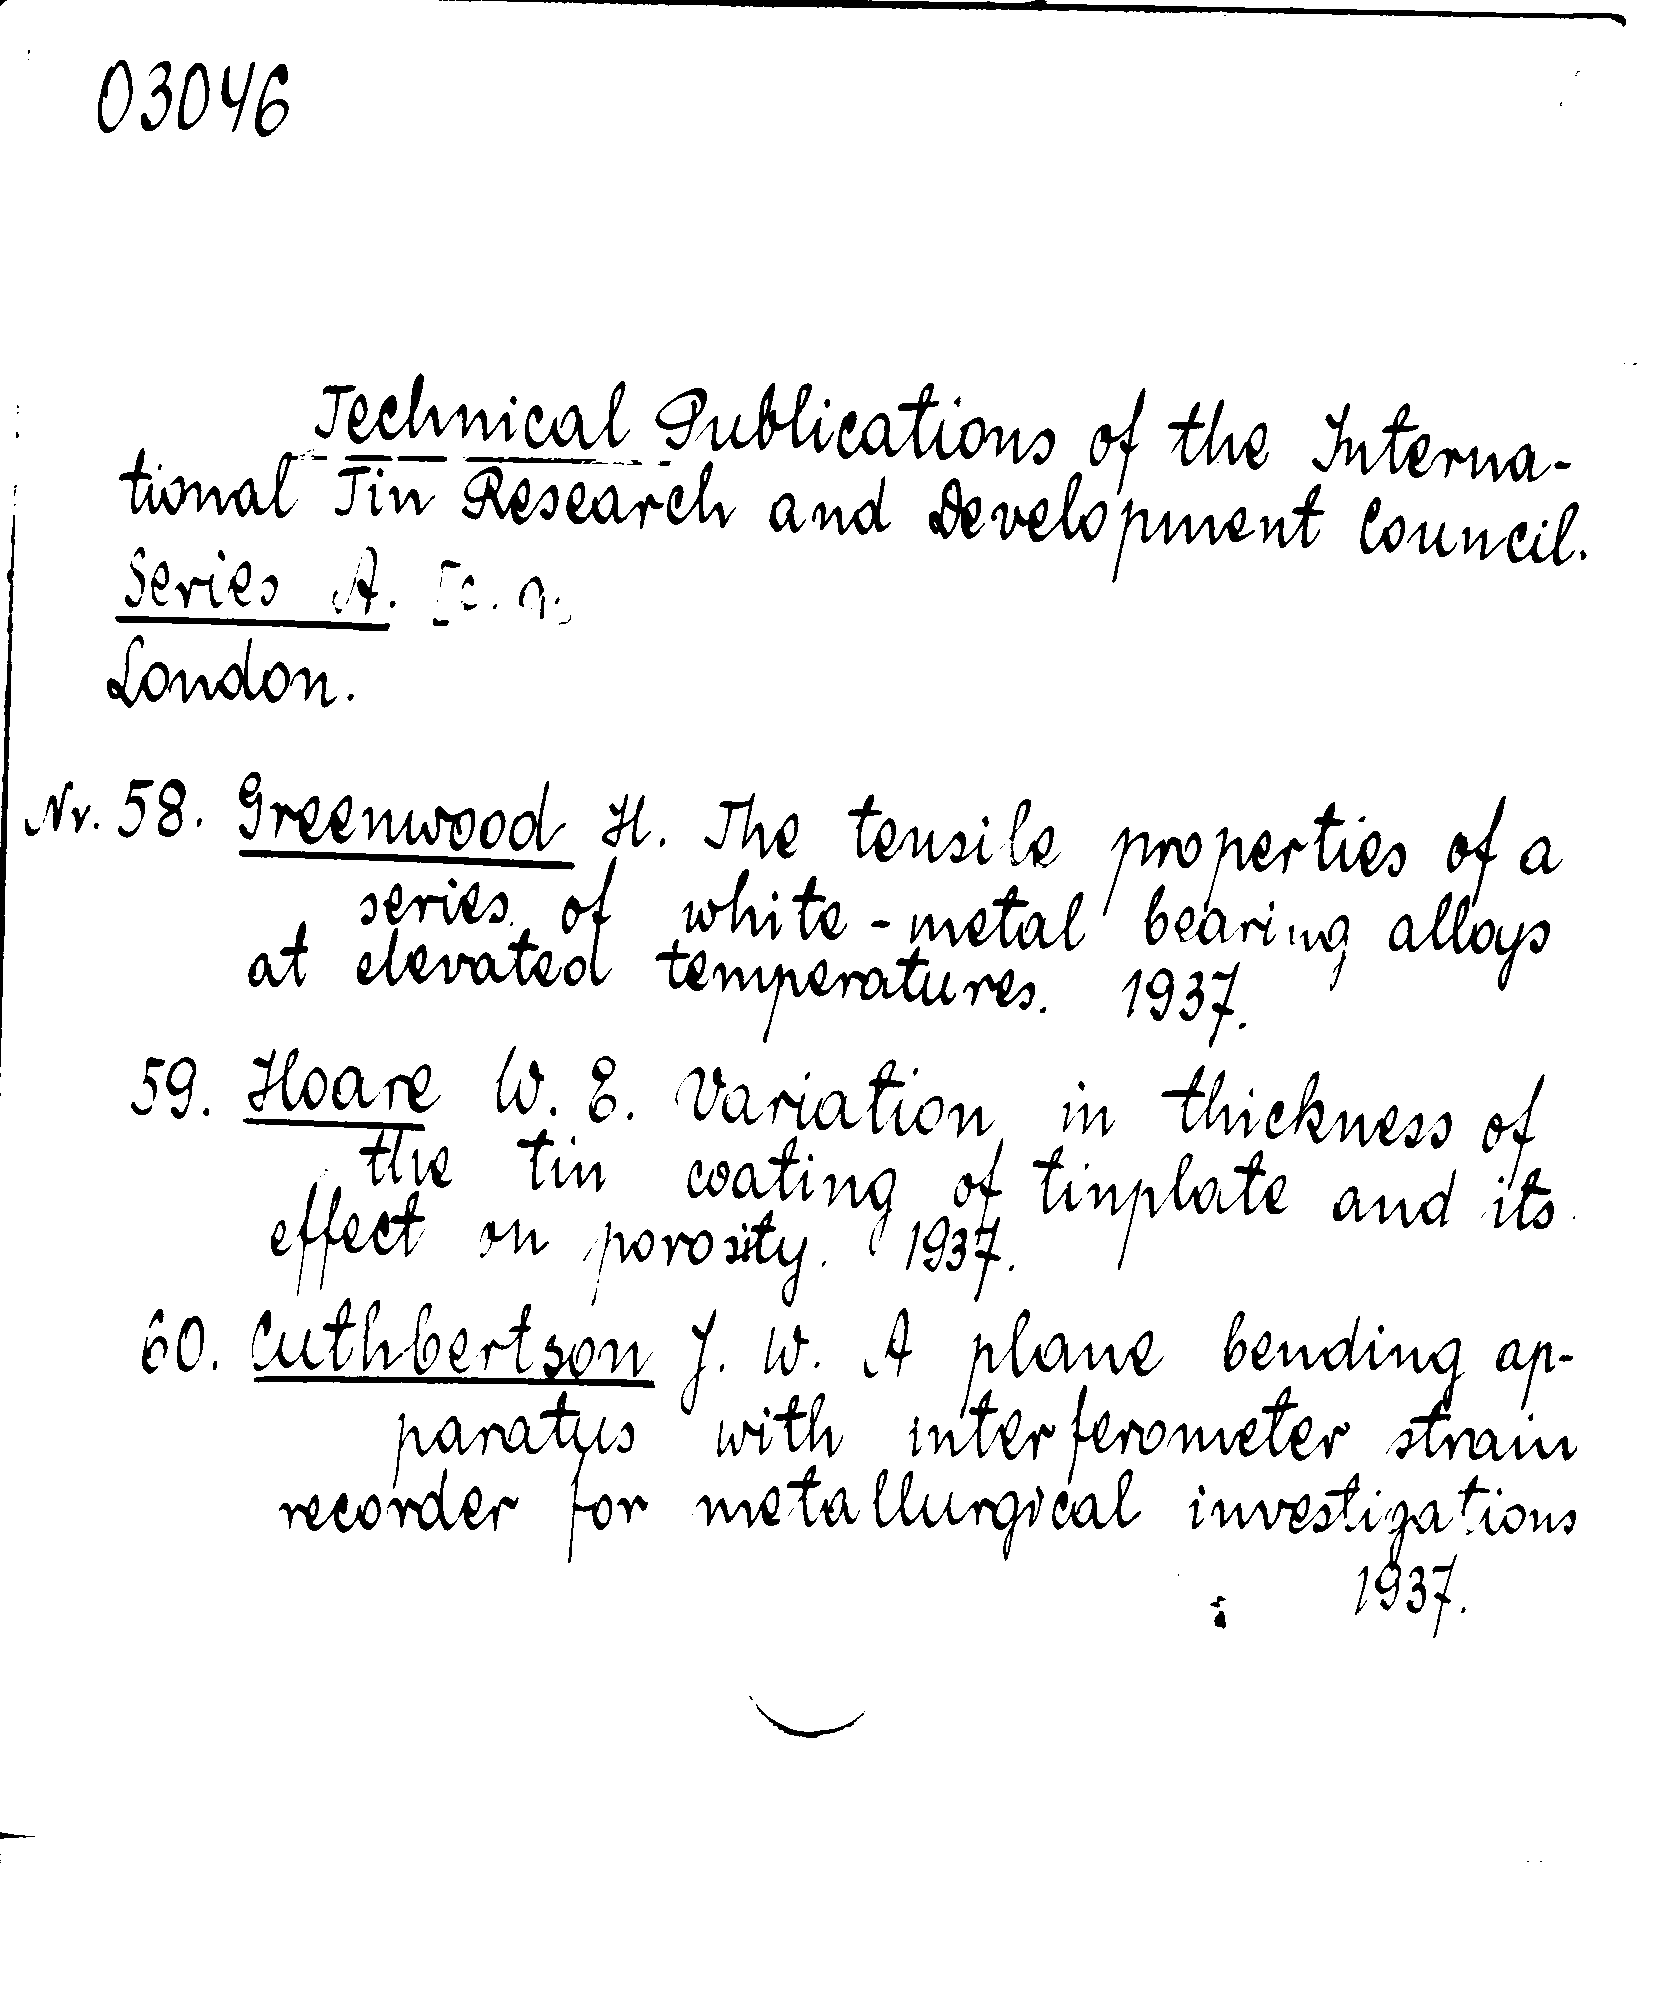 03046
Technical Publications of the Interna-
tional Tin Research and Development Council.
Series A.
London.
Nr. 58. Greenwood H. The tensile properties of a
series of white-metal bearing alloys
at elevated temperatures. 1937.
59. Hoare W. E. Variation in thickness of
the tin coating of tinplate and its
effect on porosity. 1937.
60. Cuthbertson J. W. A plane bending ap-
paratus with interferometer strain
recorder for metallurgical investigations
1937.